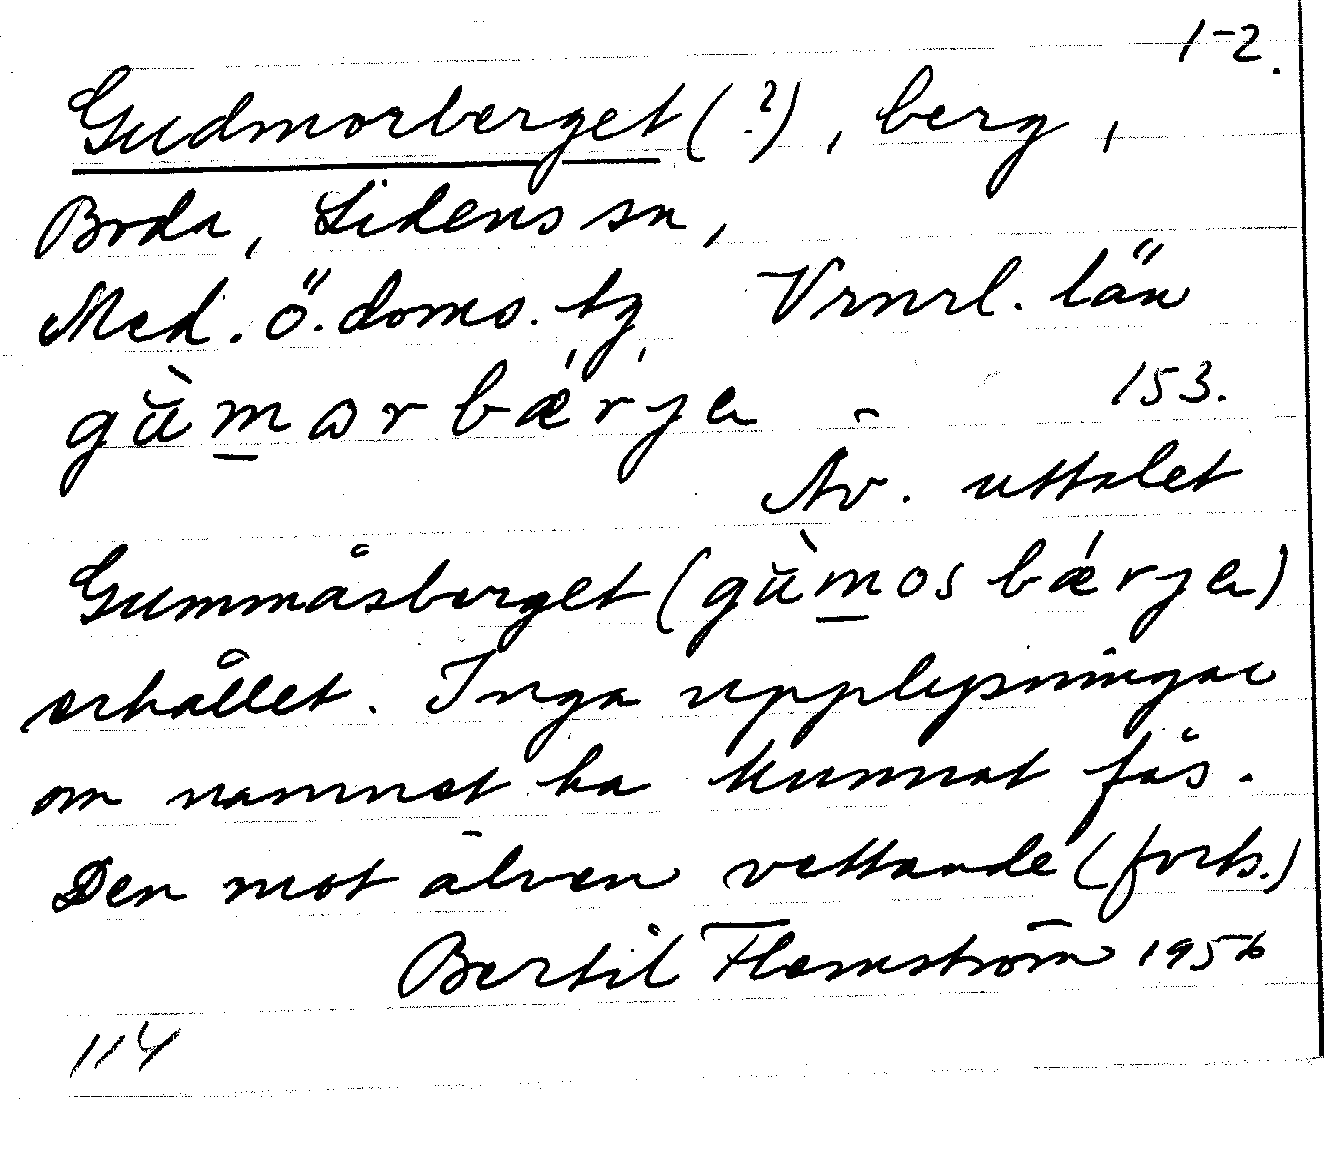 1-2.
Gudmorberget (?), berg,
Boda, Lidens sn,
Med. ö. doms. tg Vrnrl. län
gùmorbǽrjə 153.
Av. uttalet
Gummåsberget (gùmosbǽrjə)
erhållet. Inga upplysningar
om namnet ha kunnat fås.
Den mot älven vettande (forts.)
Bertil Flemström 1956
114